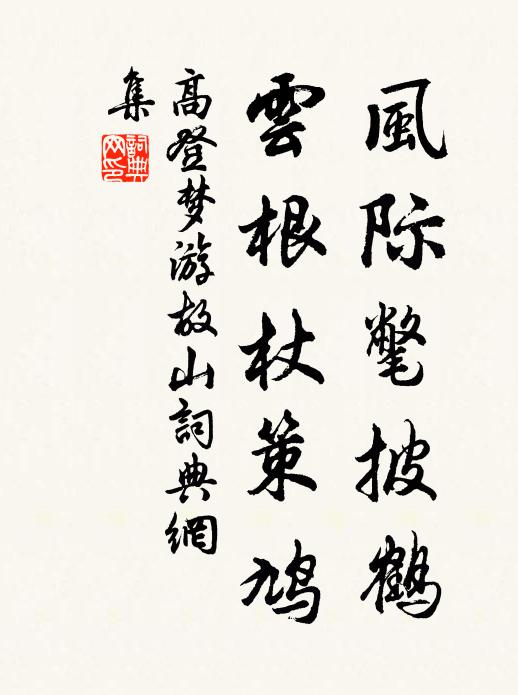 風际氅披鶴
雲根杖策鳩
高登梦游故山詞典網
集
詞典
网印